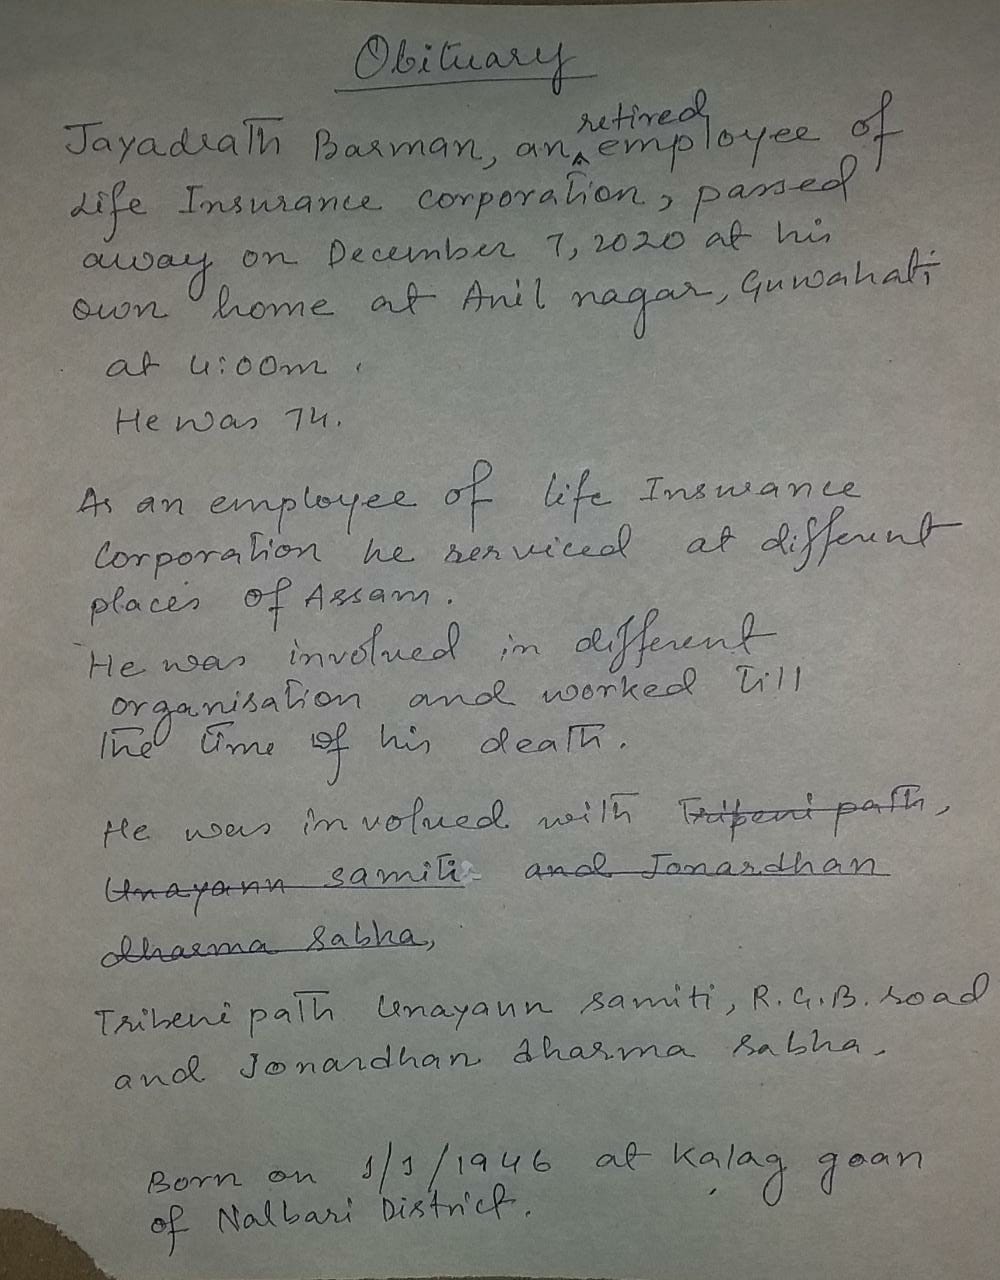 Obituary
Jayadrath Barman, an retired employee of
Life Insurance corporation, passed
away on December 7, 2020 at his
own home at Anil nagar, Guwahati
at 4:00m.
He was 74.
As an employee of life Insurance
Corporation he serviced at different
places of Assam.
He was involved in different
organisation and worked till
the time of his death.
He was involved with Tribeni path,
Unayann samiti and Jonardhan
dharma sabha,
Tribeni path Unayann samiti, R.G.B. road
and Jonardhan dharma sabha.
Born on 1/1/1946 at Kalag goan
of Nalbari District.